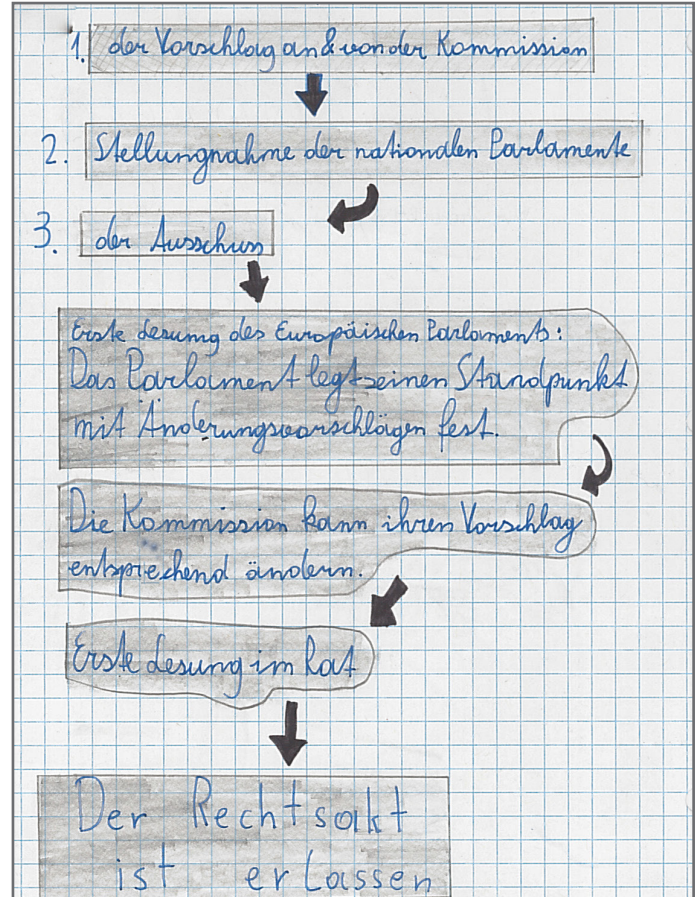 1. der Vorschlag an & von der Kommission
2. Stellungnahme der nationalen Parlamente
3. der Ausschuss
Erste Lesung des Europäischen Parlaments:
Das Parlament legt seinen Standpunkt
mit Änderungsvorschlägen fest.
Die Kommission kann ihren Vorschlag
entsprechend ändern.
Erste Lesung im Rat
Der Rechtsakt
ist erlassen